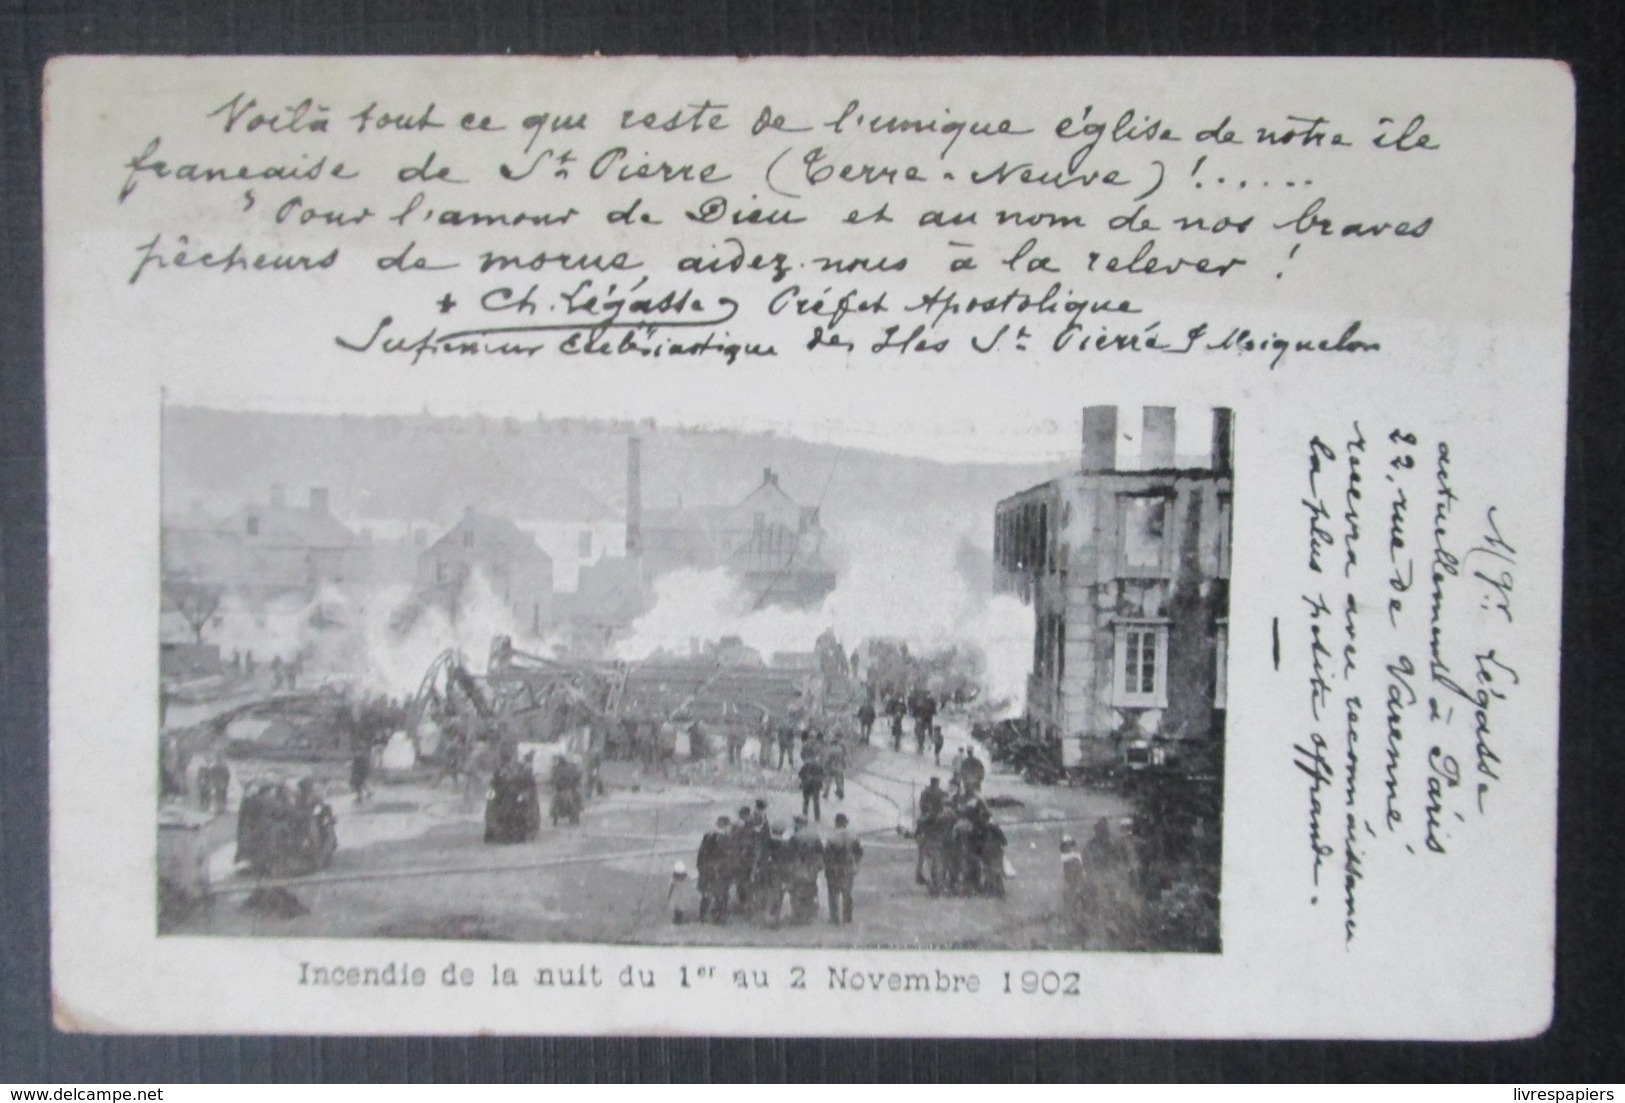 Voilà tout ce qui reste de l'unique église de notre île
française de St Pierre (Terre-Neuve) !......
Pour l'amour de Dieu et au nom de nos braves
pêcheurs de morue, aidez-nous à la relever !
+ Ch. Légasse, Préfet Apostolique
Supérieur Ecclésiastique des Iles St Pierre & Miquelon
Mgr: Légasse
actuellement à Paris
22, rue de Varenne
recevra avec reconnaissance
la plus petite offrande.
Incendie de la nuit du 1er au 2 Novembre 1902
livrespapiers